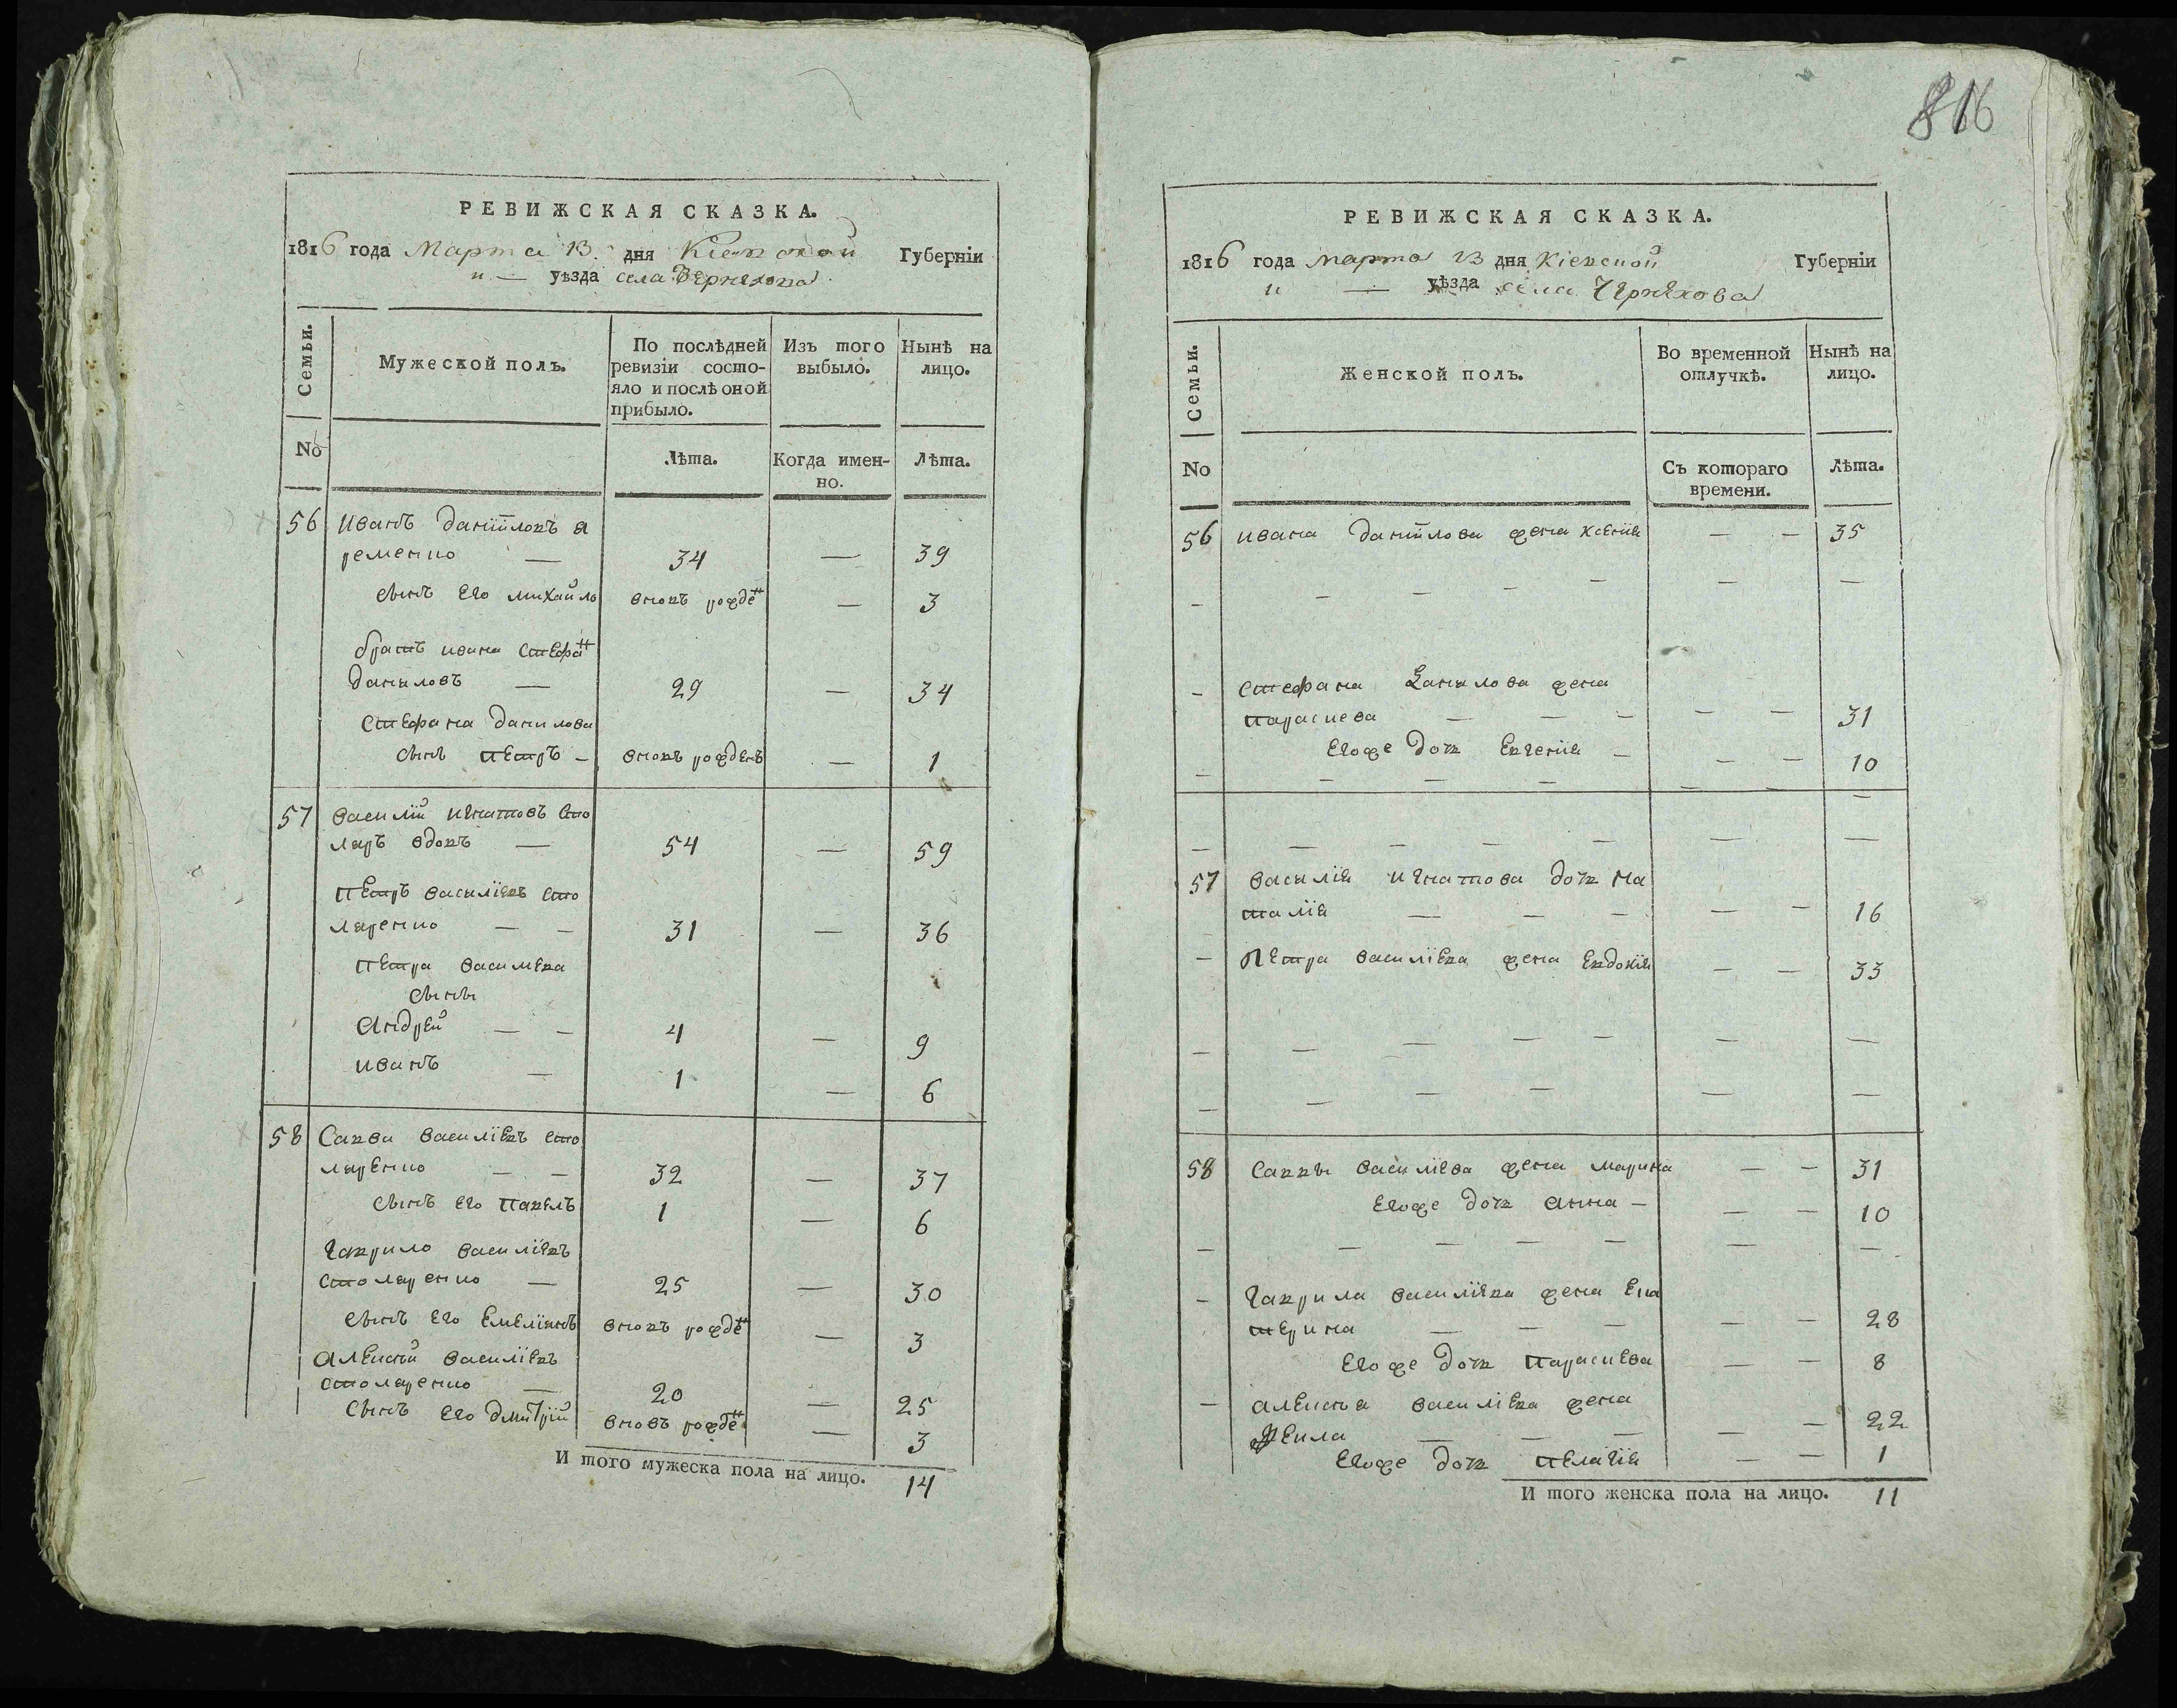 816
РЕВИЖСКАЯ СКАЗКА.
1816 года Марта 13 дня Кіевской Губерніи
и — уѣзда села Черняхова
Семьи.
Мужеской полъ.
По послѣдней ревизіи состо-
яло и послѣ оной
прибыло.
Изъ того выбыло.
Нынѣ на лицо.
No
Лѣта.
Когда имен-
но.
Лѣта.
56 Иванъ Даніиловъ я
ременко — 34 — 39
сынъ его михайло вновь рожден — 3
братъ ивана стефан
даниловъ — 29 — 34
стефана данилова
сынъ петръ — вновь рожденъ — 1
57 василій игнатовъ сто
ляръ вдовъ — 54 — 59
петръ василіевъ сто
ляренко — — 31 — 36
петра василиева
сыны
Андрей — — 4 — 9
иванъ — 1 — 6
58 Савва василіевъ сто
ляренко — — 32 — 37
сынъ его павелъ 1 — 6
гаврило василіевъ
столяренко — 25 — 30
сынъ его емеліянъ вновь рожден — 3
алексѣй василіевъ
столяренко — 20 — 25
сынъ его дмитрій вновъ рожден — 3
И того мужеска пола на лицо. 14
РЕВИЖСКАЯ СКАЗКА.
1816 года марта 13 дня Кіевской Губерніи
и — уѣзда села Черняхова
Семьи.
Женской полъ.
Во временной отлучкѣ.
Нынѣ на лицо.
No
Съ котораго времени.
Лѣта.
56 ивана даніилова жена ксенія — — 35
— — — — — — —
— стефана данилова жена
параскева — — — — — 31
егоже дочь евгенія — — — 10
— — — — — — —
— — — — — — —
57 василія игнатова дочь на
талія — — — — — 16
— Петра василіева жена евдокія — — 33
— — — — — — —
— — — — — —
58 саввы василіева жена марина — — 31
егоже дочь анна — — — 10
— — — — — — —
— гаврила василіева жена ека
терина — — — — — 28
егоже дочь параскева — — 8
— алексѣя василіева жена
фекла — — — — — 22
егоже дочь пелагія — — 1
И того женска пола на лицо. 11